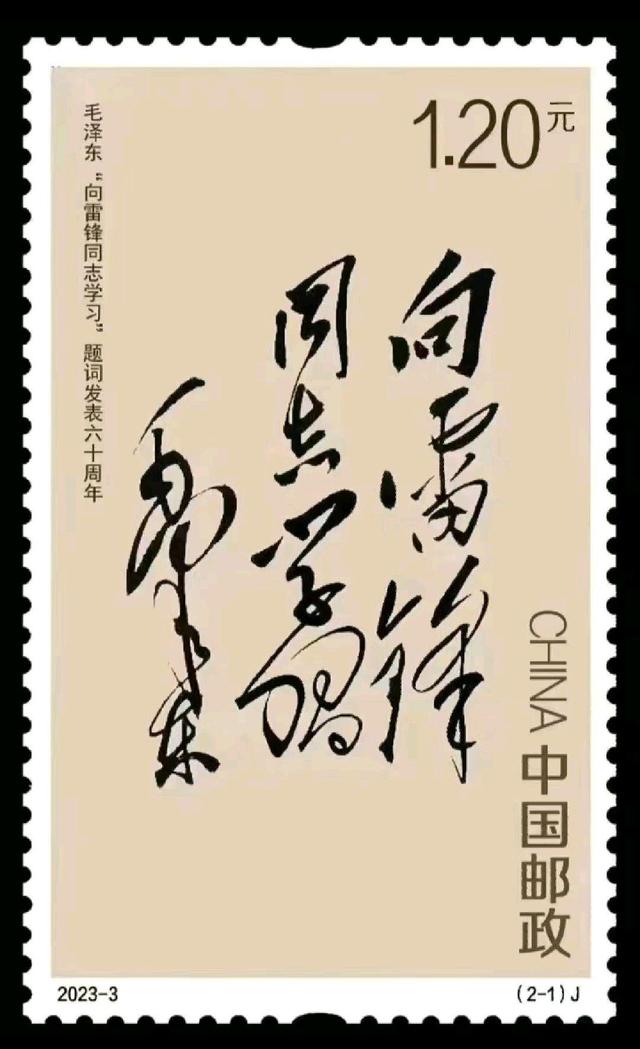 1.20元
毛泽东“向雷锋同志学习”题词发表六十周年
向雷锋
同志学习
毛泽东
CHINA
中国邮政
2023-3
(2-1)J